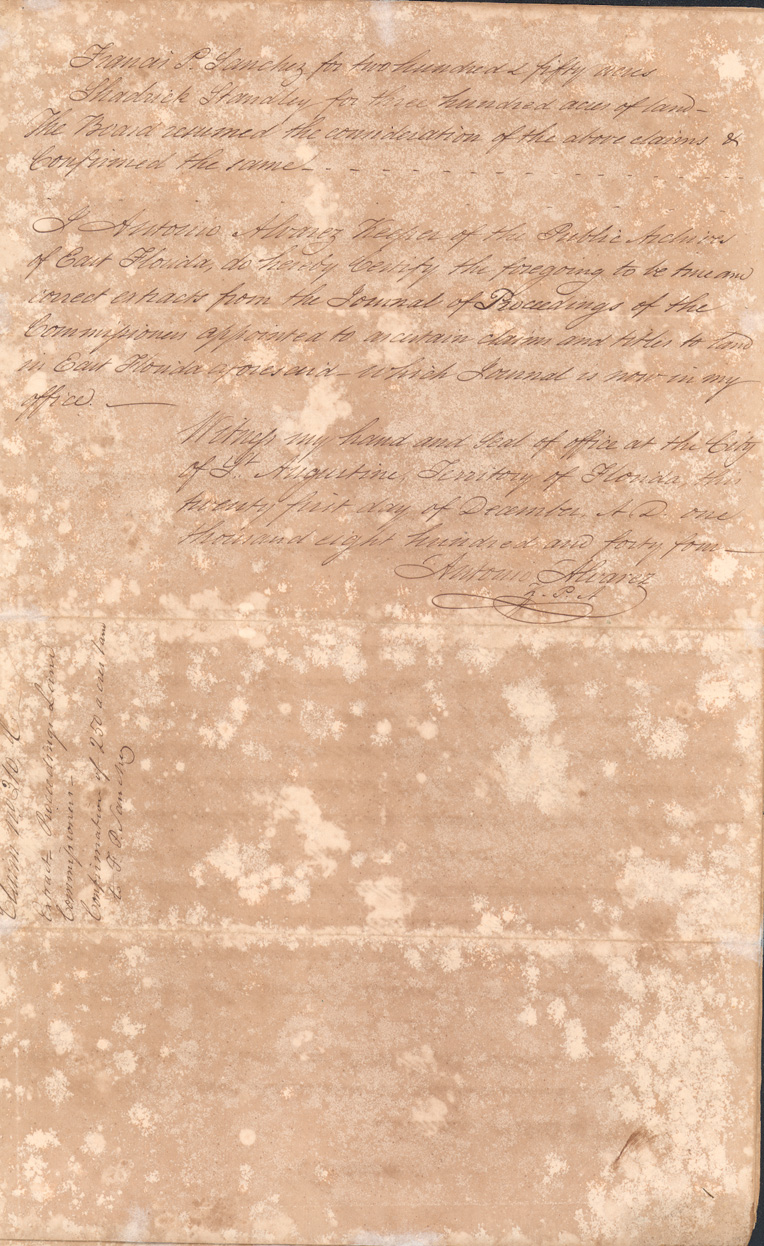 Francis P. Sanchez for two hundred & fifty acres
Shadrick Standley for three hundred acres of land –
The Board resumed the consideration of the above claims &
Confirmed the same –
I Antonio Alvarez Keeper of the Public Archives
of East Florida, do hereby Certify the foregoing to be true and
correct extracts from the Journal of Proceedings of the
Commissioners appointed to ascertain claims and titles to land
in East Florida aforesaid – which Journal is now in my
office. —
Witness my hand and Seal of office at the City
of St. Augustine, Territory of Florida, this
twenty first day of December A. D. one
thousand eight hundred and forty four —
Antonio Alvarez
K. P. A
Claim
Extract Proceedings Land
Commissioners
Confirmation of 250 acres land
to F. P. Sanchez